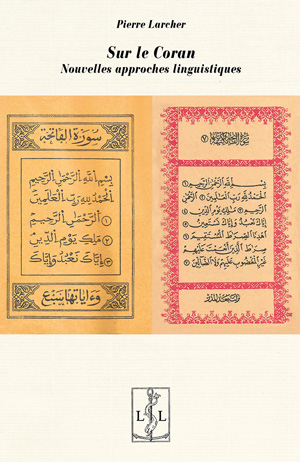 Pierre Larcher
Sur le Coran
Nouvelles approches linguistiques
سورة الفاتحة
بسم الله الرحمٰن الرحيم
الحمد لله رب العٰلمين
الرحمٰن الرحيم
ملك يوم الدين
إياك نعبد وإياك
وءاياتها سبع
الرحيم ملك يوم الدين
إياك نعبد وإياك نستعين
اهدنا الصراط المستقيم
صراط الذين أنعمت عليهم
غير المغضوب عليهم ولا الضالين
L L